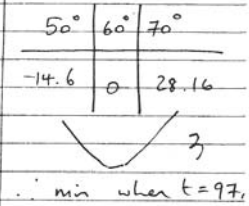 50° 60° 70°
-14.6 0 28.16
3
∴ min when t=97,